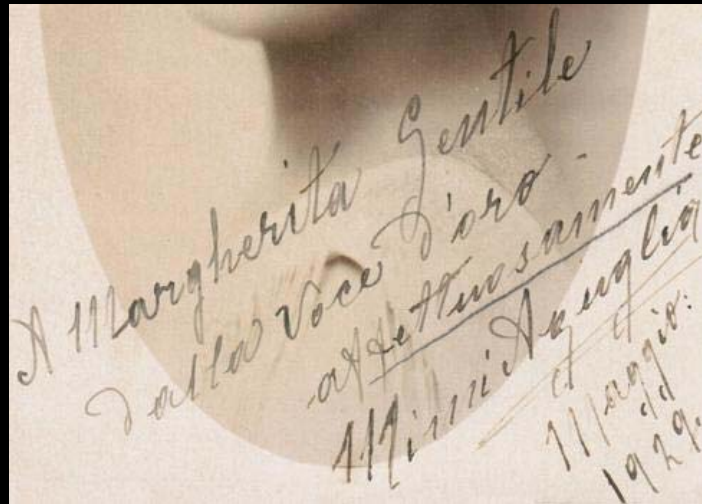 A Margherita Gentile
dalla Voce d'oro -
affettuosamente
Mimi Aguglia
Maggio:
1929.